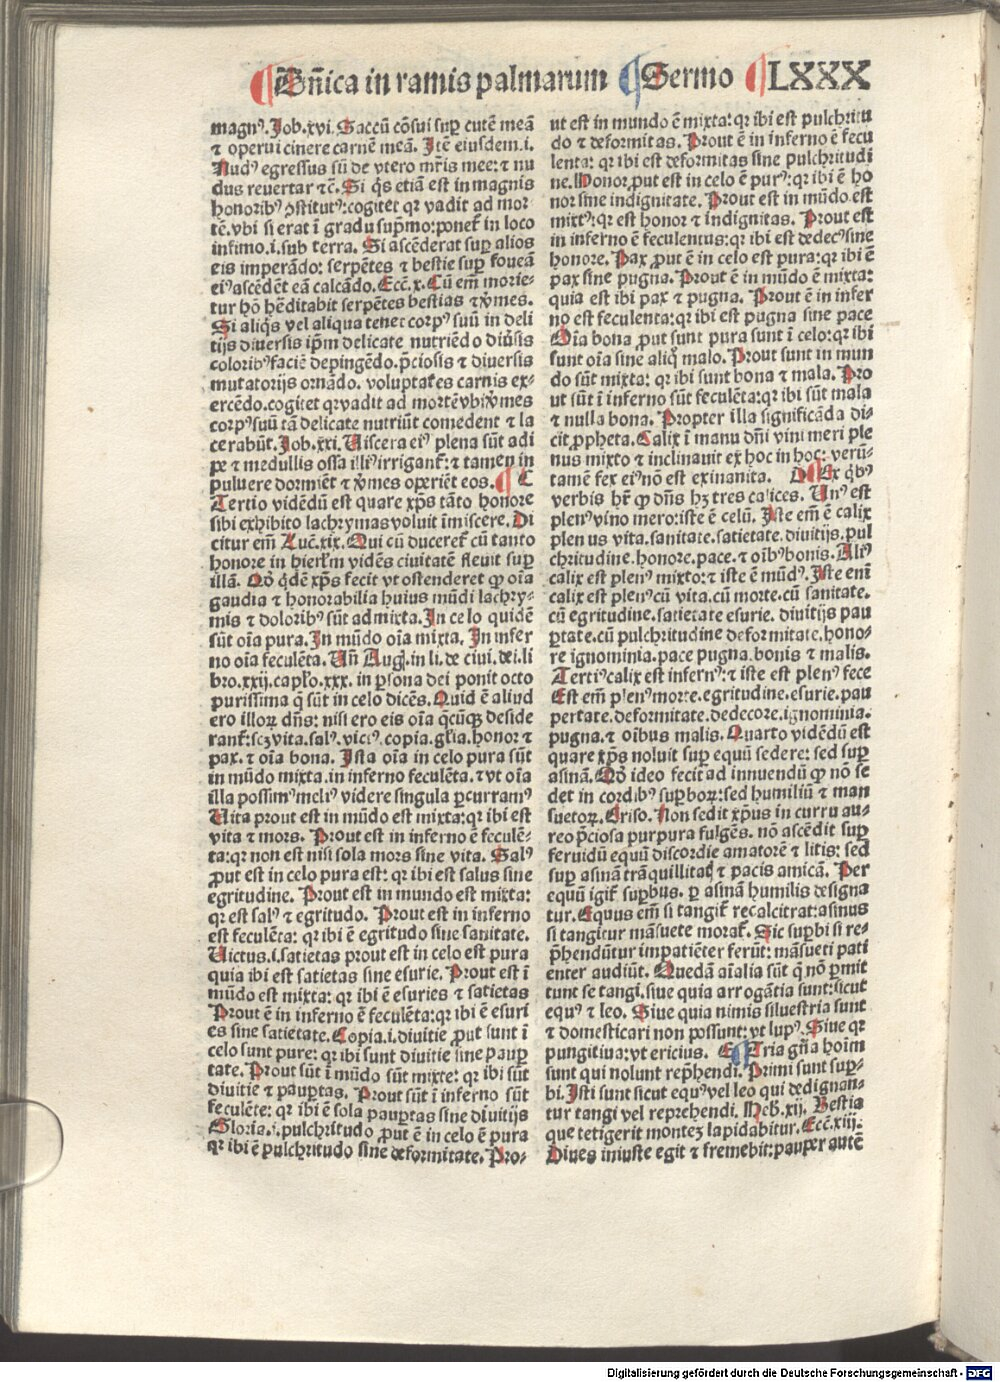 ¶ Dñica in ramis palmarum ¶ Sermo ¶ LXXX
magnꝰ. Job. xvi. Saccũ cõsui suꝑ cutẽ meã
⁊ operui cinere carnẽ meã. Jtẽ eiusdem .i.
Nudꝰ egressus sũ de vtero mr̃is mee: ⁊ nu
dus reuertar ⁊c̃. Si q̃s etiã est in magnis
honoribꝰ ꝯstitutꝰ: cogitet qꝛ vadit ad mor
tẽ. vbi si erat ĩ gradu sup̃mo: ponet᷑ in loco
infimo .i. sub terra. Si ascẽderat suꝑ alios
eis imperãdo: serpẽtes ⁊ bestie suꝑ foueã
eiꝰ ascẽdẽt eã calcãdo. Ecc̃. x. Cũ em̃ morie-
tur hõ hẽditabit serpẽtes bestias ⁊ v̾mes.
Si aliq̃s vel aliqua tenet corpꝰ suũ in deli
tijs diuersis ip̃m delicate nutriẽdo diũsis
coloribꝰ faciẽ depingẽdo. p̃ciosis ⁊ diuersis
mutatorijs ornãdo. voluptates carnis ex-
ercẽdo. cogitet qꝛ vadit ad mortẽ vbi v̾mes
corpꝰ suũ tã delicate nutriũt comedent ⁊ la
cerabũt. Job. xxi. Uiscera eiꝰ plena sũt adi
pe ⁊ medullis ossa illiꝰ irrigant᷑: ⁊ tamen in
puluere dormiẽt ⁊ v̾mes operiẽt eos. ¶ C
Tertio vidẽdũ est quare xp̃s tãto honore
sibi exhibito lachrymas voluit ĩmiscere. Di
citur em̃ Luc̃. xix. Qui cũ duceret᷑ cũ tanto
honore in hierl̃m vidẽs ciuitatẽ fleuit suꝑ
illã. Qð q̃dẽ xp̃s fecit vt ostenderet ꝙ oĩa
gaudia ⁊ honorabilia huius mũdi lachry-
mis ⁊ doloribꝰ sũt admixta. Jn celo quidẽ
sũt oĩa pura. Jn mũdo oĩa mixta. Jn infer
no oĩa feculẽta. Uñ Aug̃. in li. de ciui. dei. li
bro. xxij. capl̃o. xxx. in ꝑsona dei ponit octo
purissima q̃ sũt in celo dicẽs. Quid ẽ aliud
ero illoꝝ dñs: nisi ero eis oĩa q̃cũqꝫ deside
rant᷑: scꝫ vita. salꝰ. victꝰ. copia. gl̃ia. honor ⁊
pax. ⁊ oĩa bona. Jsta oĩa in celo pura sũt
in mũdo mixta. in inferno feculẽta. ⁊ vt oĩa
illa possimꝰ meliꝰ videre singula ꝑcurramꝰ
Uita prout est in mũdo est mixta: qꝛ ibi est
vita ⁊ mors. Prout est in inferno ẽ feculẽ-
ta: qꝛ non est nisi sola mors sine vita. Salꝰ
ꝓut est in celo pura est: qꝛ ibi est salus sine
egritudine. Prout est in mundo est mixta:
qꝛ est salꝰ ⁊ egritudo. Prout est in inferno
est feculẽta: qꝛ ibi ẽ egritudo sine sanitate.
Uictus .i. satietas prout est in celo est pura
quia ibi est satietas sine esurie. Prout est ĩ
mũdo est mixta: qꝛ ibi ẽ esuries ⁊ satietas
Prout ẽ in inferno ẽ feculẽta: qꝛ ibi ẽ esuri
es sine satietate. Copia .i. diuitie ꝓut sunt ĩ
celo sunt pure: qꝛ ibi sunt diuitie sine pauꝑ
tate. Prout sũt ĩ mũdo sũt mixte: qꝛ ibi sũt
diuitie ⁊ pauꝑtas. Prout sũt ĩ inferno sũt
feculẽte: qꝛ ibi ẽ sola pauꝑtas sine diuitijs
Gloria .i. pulchritudo ꝓut ẽ in celo ẽ pura
qꝛ ibi ẽ pulchritudo sine deformitate. Pro-
ut est in mundo ẽ mixta: qꝛ ibi est pulchritu
do ⁊ deformitas. Prout ẽ in inferno ẽ fecu
lenta: qꝛ ibi est deformitas sine pulchritudi
ne. Honor ꝓut est in celo ẽ purꝰ: qꝛ ibi ẽ ho
nor sine indignitate. Prout est in mũdo est
mixtꝰ: qꝛ est honor ⁊ indignitas. Prout est
in inferno ẽ feculentus: qꝛ ibi est dedecꝰ sine
honore. Pax ꝓut ẽ in celo est pura: qꝛ ibi ẽ
pax sine pugna. Prout ẽ in mũdo ẽ mixta:
quia est ibi pax ⁊ pugna. Prout ẽ in infer
no est feculenta: qꝛ ibi est pugna sine pace
Oĩa bona ꝓut sunt pura sunt ĩ celo: qꝛ ibi
sunt oĩa sine aliq̃ malo. Prout sunt in mun
do sũt mixta: qꝛ ibi sunt bona ⁊ mala. Pro
ut sũt ĩ inferno sũt feculẽta: qꝛ ibi sũt mala
⁊ nulla bona. Propter illa significãda di-
cit ꝓpheta. Calix ĩ manu dñi vini meri ple
nus mixto ⁊ inclinauit ex hoc in hoc: verũ-
tamẽ fex eiꝰ nõ est exinanita. D ¶ Ex q̃bꝰ
verbis hr̃ ꝙ dñs hꝫ tres calices. Unꝰ est
plenꝰ vino mero: iste ẽ celũ. Jste em̃ ẽ calix
plenus vita. sanitate. satietate. diuitijs. pul
chritudine. honore. pace. ⁊ oĩbꝰ bonis. Aliꝰ
calix est plenꝰ mixto: ⁊ iste ẽ mũdꝰ. Jste enĩ
calix est plenꝰ cũ vita. cũ morte. cũ sanitate.
cũ egritudine. satietate esurie. diuitijs pau
ꝑtate. cũ pulchritudine deformitate. hono-
re ignominia. pace pugna. bonis ⁊ malis.
Tertiꝰ calix est infernꝰ: ⁊ iste est plenꝰ fece
Est em̃ plenꝰ morte. egritudine. esurie. pau
pertate. deformitate. dedecore. ignominia.
pugna. ⁊ oĩbus malis. Quarto vidẽdũ est
quare xp̃s noluit suꝑ equũ sedere: sed suꝑ
asinã. Qð ideo fecit ad innuendũ ꝙ nõ se
det in cordibꝰ suꝑboꝝ: sed humiliũ ⁊ man
suetoꝝ. Criso. Non sedit xp̃us in curru au-
reo p̃ciosa purpura fulgẽs. nõ ascẽdit suꝑ
feruidũ equũ discordie amatorẽ ⁊ litis: sed
suꝑ asinã trãquillitatẽ ⁊ pacis amicã. Per
equũ igit᷑ suꝑbus. ꝑ asinã humilis designa
tur. Equus em̃ si tangit᷑ recalcitrat: asinus
si tangitur mãsuete morat᷑. Sic suꝑbi si re-
p̃hendũtur impatiẽter ferũt: mãsueti pati
enter audiũt. Quedã aĩalia sũt q̃ nõ ꝑmit
tunt se tangi. siue quia arrogãtia sunt: sicut
equꝰ ⁊ leo. Siue quia nimis siluestria sunt
⁊ domesticari non possunt: vt lupꝰ. Siue qꝛ
pungitiua: vt ericius. E ¶ Tria gña hoĩm
sunt qui nolunt rep̃hendi. Primi sunt suꝑ-
bi. Jsti sunt sicut equꝰ vel leo qui dedignan-
tur tangi vel reprehendi. Heb. xij. Bestia
que tetigerit monteꝫ lapidabitur. Ecc̃. xiij.
Diues iniuste egit ⁊ fremebit: pauper autẽ
Digitalisierung gefördert durch die Deutsche Forschungsgemeinschaft - DFG